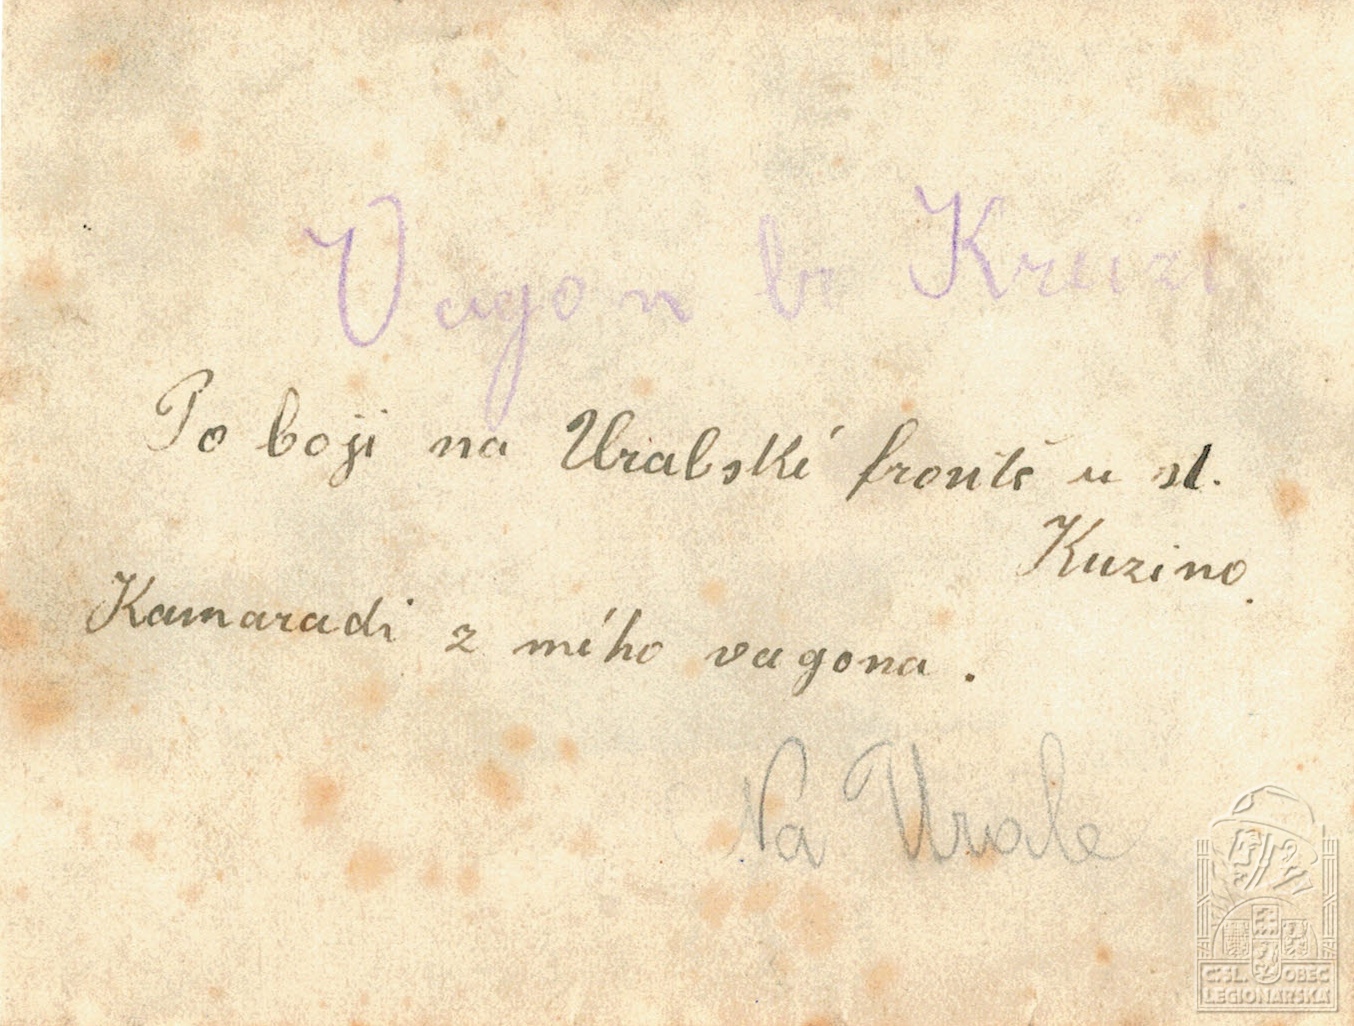 Vagon br Kruzi
Po boji na Uralské frontě u st.
Kuzino.
Kamaradi z mího vagona.
Na Urale
Č.SL. OBEC
LEGIONÁŘSKÁ